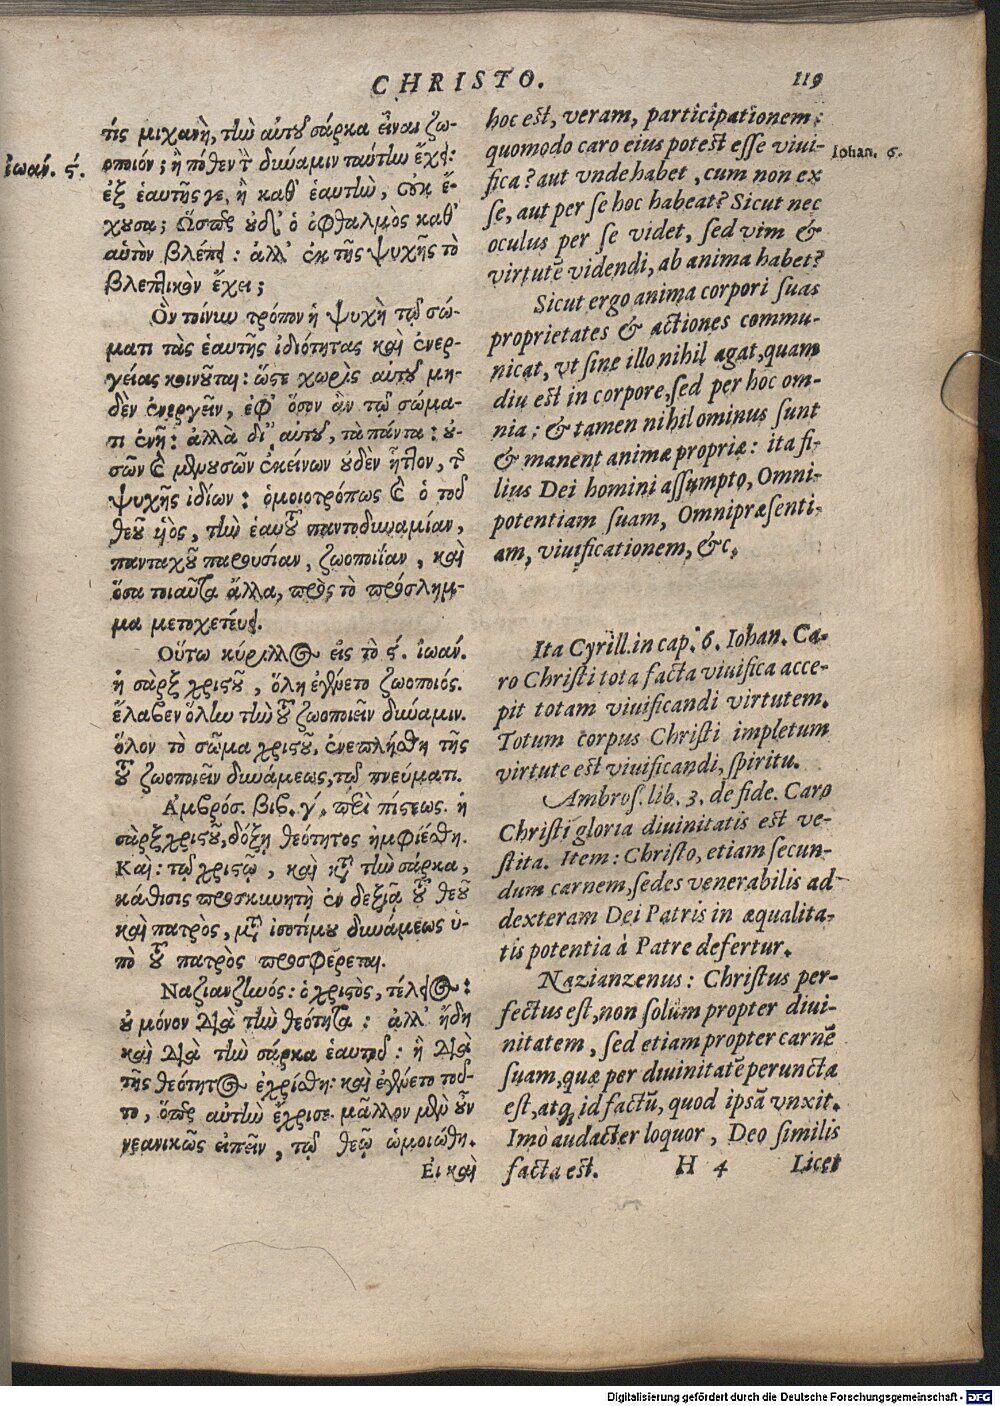 CHRISTO. 119
τίς μιχανὴ, τὴν αὐτοῦ σάρκα εἶναι ζω-
οποιόν; ἢ πόθεν τ δύναμιν ταύτην ἔχει:
ἐξ ἑαυτῆς γε, ἢ καθ' ἑαυτὴν, οὐκ ἔ-
χουσα; Ὥσπερ οὐδ' ὁ ὀφθαλμὸς καθ'
αὑτὸν βλέπει: ἀλλ' ἐκ τῆς ψυχῆς τὸ
βλεπτικὸν ἔχει;
Ὃν τοίνυν τρόπον ἡ ψυχὴ τῷ σώ-
ματι τὰς ἑαυτῆς ἰδιότητας καὶ ἐνερ-
γείας κοινοῦται: ὥστε χωρὶς αὐτοῦ μη-
δὲν ἐνεργεῖν, ἐφ' ὅσον ἂν τῷ σώμα-
τι ἐνῇ: ἀλλὰ δι' αὐτοῦ, τὰ πάντα: οὐ-
σῶν καὶ μενουσῶν ἐκείνων οὐδὲν ἧττον, τ
ψυχῆς ἰδίων: ὁμοιοτρόπως καὶ ὁ τοῦ
θεοῦ υἱὸς, τὴν ἑαυτοῦ παντοδυναμίαν,
πανταχοῦ παρουσίαν, ζωοποιΐαν, καὶ
ὅσα τοιαῦτα ἄλλα, πρὸς τὸ πρόσλημ-
μα μετοχετέυει.
Οὕτω κύριλλος εἰς τὸ ϛ. ἰωάν.
ἡ σὰρξ χριστοῦ, ὅλη ἐγένετο ζωοποιός.
ἔλαβεν ὅλην τὴν τοῦ ζωοποιεῖν δύναμιν.
ὅλον τὸ σῶμα χριστοῦ, ἐνεπλήσθη τῆς
τοῦ ζωοποιεῖν δυνάμεως, τῷ πνεύματι.
Ἀμβρόσ. βιβ. γ'. περὶ πίστεως. ἡ
σὰρξ χριστοῦ, δόξῃ θεότητος ἠμφιέσθη.
Καὶ: τῷ χριστῷ, καὶ κατὰ τὴν σάρκα,
κάθισις προσκυνητὴ ἐν δεξιᾷ τοῦ θεοῦ
καὶ πατρὸς, μετὰ ἰσοτίμου δυνάμεως ὑ-
πὸ τοῦ πατρὸς προσφέρεται.
Ναζιανζηνός: ὁ χριστὸς, τέλειος:
οὐ μόνον διὰ τὴν θεότητα: ἀλλ' ἤδη
καὶ διὰ τὴν σάρκα ἑαυτοῦ: ἣ διὰ
τῆς θεότητος ἐχρίσθη: καὶ ἐγένετο τοῦ-
το, ὅπερ αὐτὴν ἔχρισε. μᾶλλον μὲν οὖν
νεανικῶς εἰπεῖν, τῷ θεῷ ὡμοιώθη.
Εἰ καὶ
ἰωάν. ϛ.
hoc est, veram, participationem:
quomodo caro eius potest esse viui-
fica? aut vnde habet, cum non ex
se, aut per se hoc habeat? Sicut nec
oculus per se videt, sed vim &
virtutē videndi, ab anima habet?
Sicut ergo anima corpori suas
proprietates & actiones commu-
nicat, vt sine illo nihil agat, quam
diu est in corpore, sed per hoc om-
nia: & tamen nihilominus sunt
& manent animæ propriæ: ita fi-
lius Dei homini assumpto, Omni-
potentiam suam, Omnipræsenti-
am, viuificationem, &c.
Ita Cyrill. in cap. 6. Iohan. Ca-
ro Christi tota facta viuifica acce-
pit totam viuificandi virtutem.
Totum corpus Christi impletum
virtute est viuificandi, spiritu.
Ambros. lib. 3. de fide. Caro
Christi gloria diuinitatis est ve-
stita. Item: Christo, etiam secun-
dum carnem, sedes venerabilis ad
dexteram Dei Patris in æqualita-
tis potentia à Patre defertur.
Nazianzenus: Christus per-
fectus est, non solùm propter diui-
nitatem, sed etiam propter carnē
suam, quæ per diuinitatē peruncta
est, atq́; id factū, quod ipsā vnxit.
Imò audacter loquor, Deo similis
facta est. H 4 Licet
Iohan. 6.
Digitalisierung gefördert durch die Deutsche Forschungsgemeinschaft - DFG